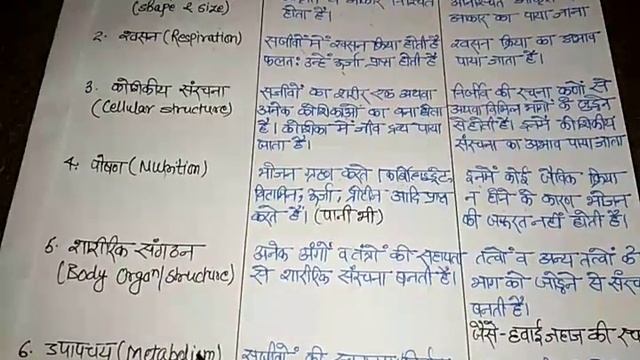 (shape & size)
होता है।
आकार का पाया जाना
2. श्वसन (Respiration)
सजीवों में श्वसन क्रिया होती है
फलतः उन्हें ऊर्जा प्राप्त होती है
श्वसन क्रिया का अभाव
पाया जाता है।
3. कोशिकीय संरचना
(Cellular structure)
सजीवों का शरीर एक अथवा
अनेक कोशिकाओं का बना होता
है। कोशिका में जीव द्रव्य पाया
जाता है।
निर्जीव की रचना कणों से
अथवा विभिन्न भागों के जुड़ने
से होती है। इनमें कोशिकीय
संरचना का अभाव पाया जाता
4. पोषण (Nutrition)
भोजन ग्रहण करते (कार्बोहाइड्रेट,
विटामिन, ऊर्जा, प्रोटीन आदि प्राप्त
करते हैं। (पानी भी)
इनमें कोई जैविक क्रिया
न होने के कारण भोजन
की जरूरत नहीं होती है।
5. शारीरिक संगठन
(Body Organ/structure)
अनेक अंगों व तंत्रों की सहायता
से शारीरिक संरचना बनती है।
तत्वों व अन्य तत्वों के
भाग को जोड़ने से संरच
बनती है।
जैसे-हवाई जहाज की रच
6. उपापचय (Metabolism)
सजीवों की